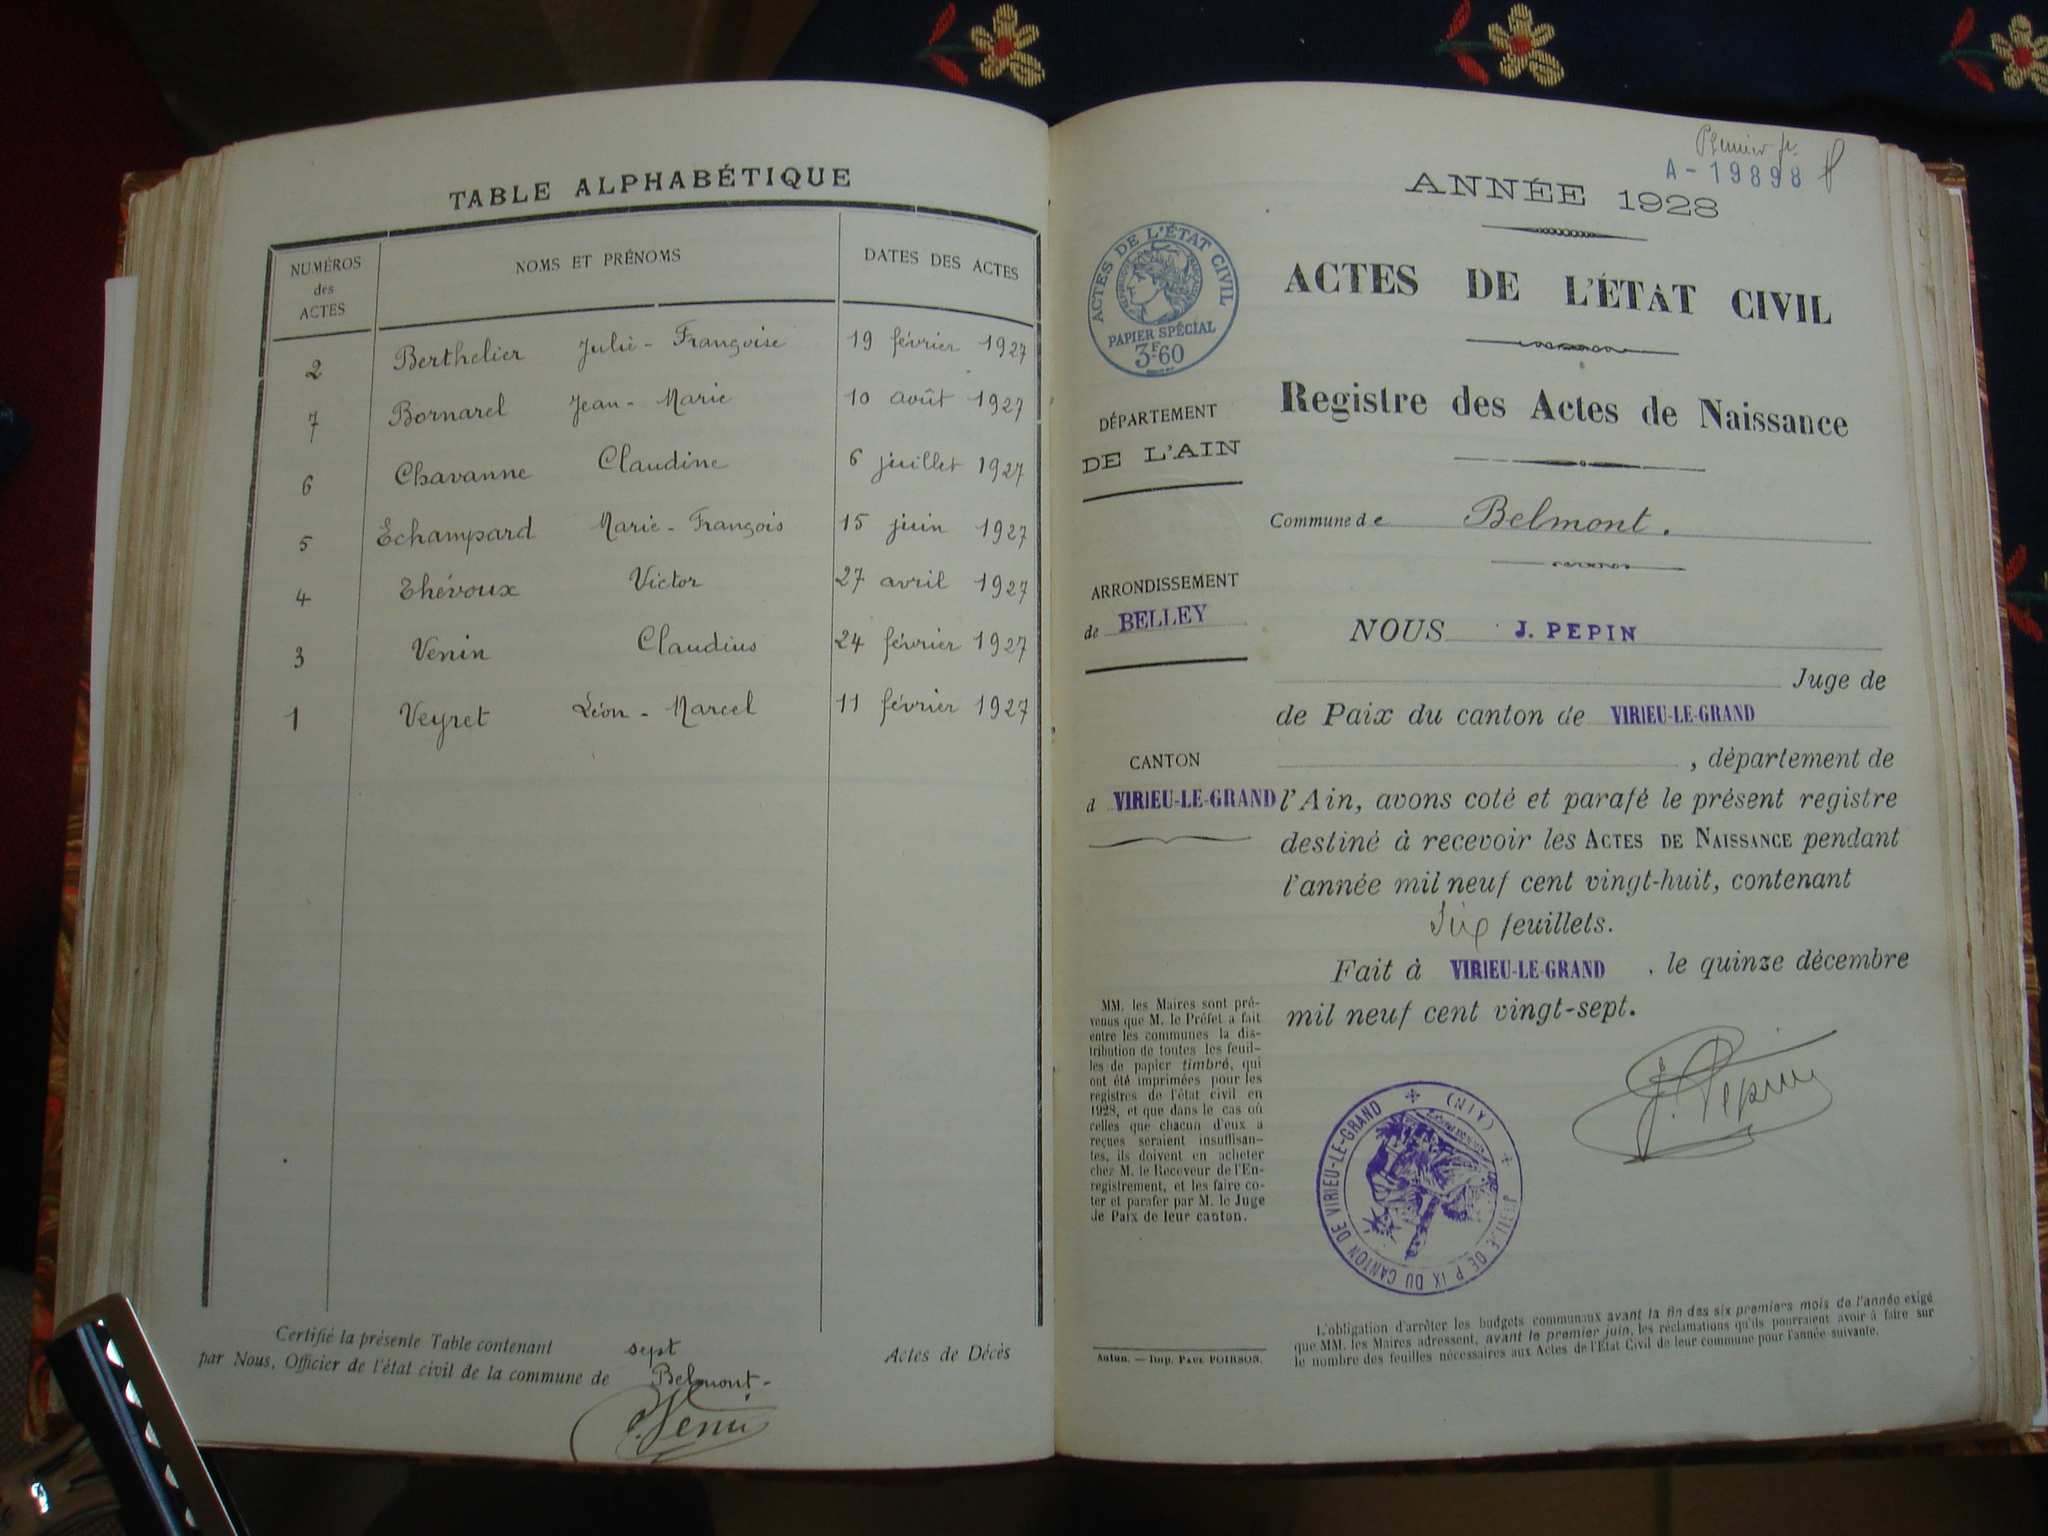 TABLE ALPHABÉTIQUE
NUMÉROS des ACTES
NOMS ET PRÉNOMS
DATES DES ACTES
2 Berthelier Julie - Françoise 19 février 1927
7 Bornarel Jean - Marie 10 août 1927
6 Chavanne Claudine 6 juillet 1927
5 Echampard Marie - François 15 juin 1927
4 Thévoux Victor 27 avril 1927
3 Venin Claudius 24 février 1927
1 Veyret Léon - Marcel 11 février 1927
Certifié la présente Table contenant sept Actes de Décès
par Nous, Officier de l'état civil de la commune de Belmont -
Premier f.
A - 19898
ANNÉE 1928
ACTES DE L'ÉTAT CIVIL
PAPIER SPÉCIAL
3F.60
ACTES DE L'ÉTAT CIVIL
Registre des Actes de Naissance
DÉPARTEMENT
DE L'AIN
Commune de Belmont.
ARRONDISSEMENT
de BELLEY
NOUS J. PEPIN
Juge de
de Paix du canton de VIRIEU-LE-GRAND
, département de
CANTON
d VIRIEU-LE-GRAND
l'Ain, avons coté et parafé le présent registre
destiné à recevoir les ACTES DE NAISSANCE pendant
l'année mil neuf cent vingt-huit, contenant
six feuillets.
Fait à VIRIEU-LE-GRAND, le quinze décembre
mil neuf cent vingt-sept.
J. Pepin
MM. les Maires sont pré-
venus que M. le Préfet a fait
entre les communes la dis-
tribution de toutes les feuil-
les de papier timbré, qui
ont été imprimées pour les
registres de l'état civil en
1928, et que dans le cas où
celles que chacun d'eux a
reçues seraient insuffisan-
tes, ils doivent en acheter
chez M. le Receveur de l'En-
registrement, et les faire co-
ter et parafer par M. le Juge
de Paix de leur canton.
JUSTICE DE PAIX DU CANTON DE VIRIEU-LE-GRAND (AIN)
Autun. — Imp. PAUL POIRSON.
L'obligation d'arrêter les budgets communaux avant la fin des six premiers mois de l'année exige
que MM. les Maires adressent, avant le premier juin, les réclamations qu'ils pourraient avoir à faire sur
le nombre des feuilles nécessaires aux Actes de l'État Civil de leur commune pour l'année suivante.